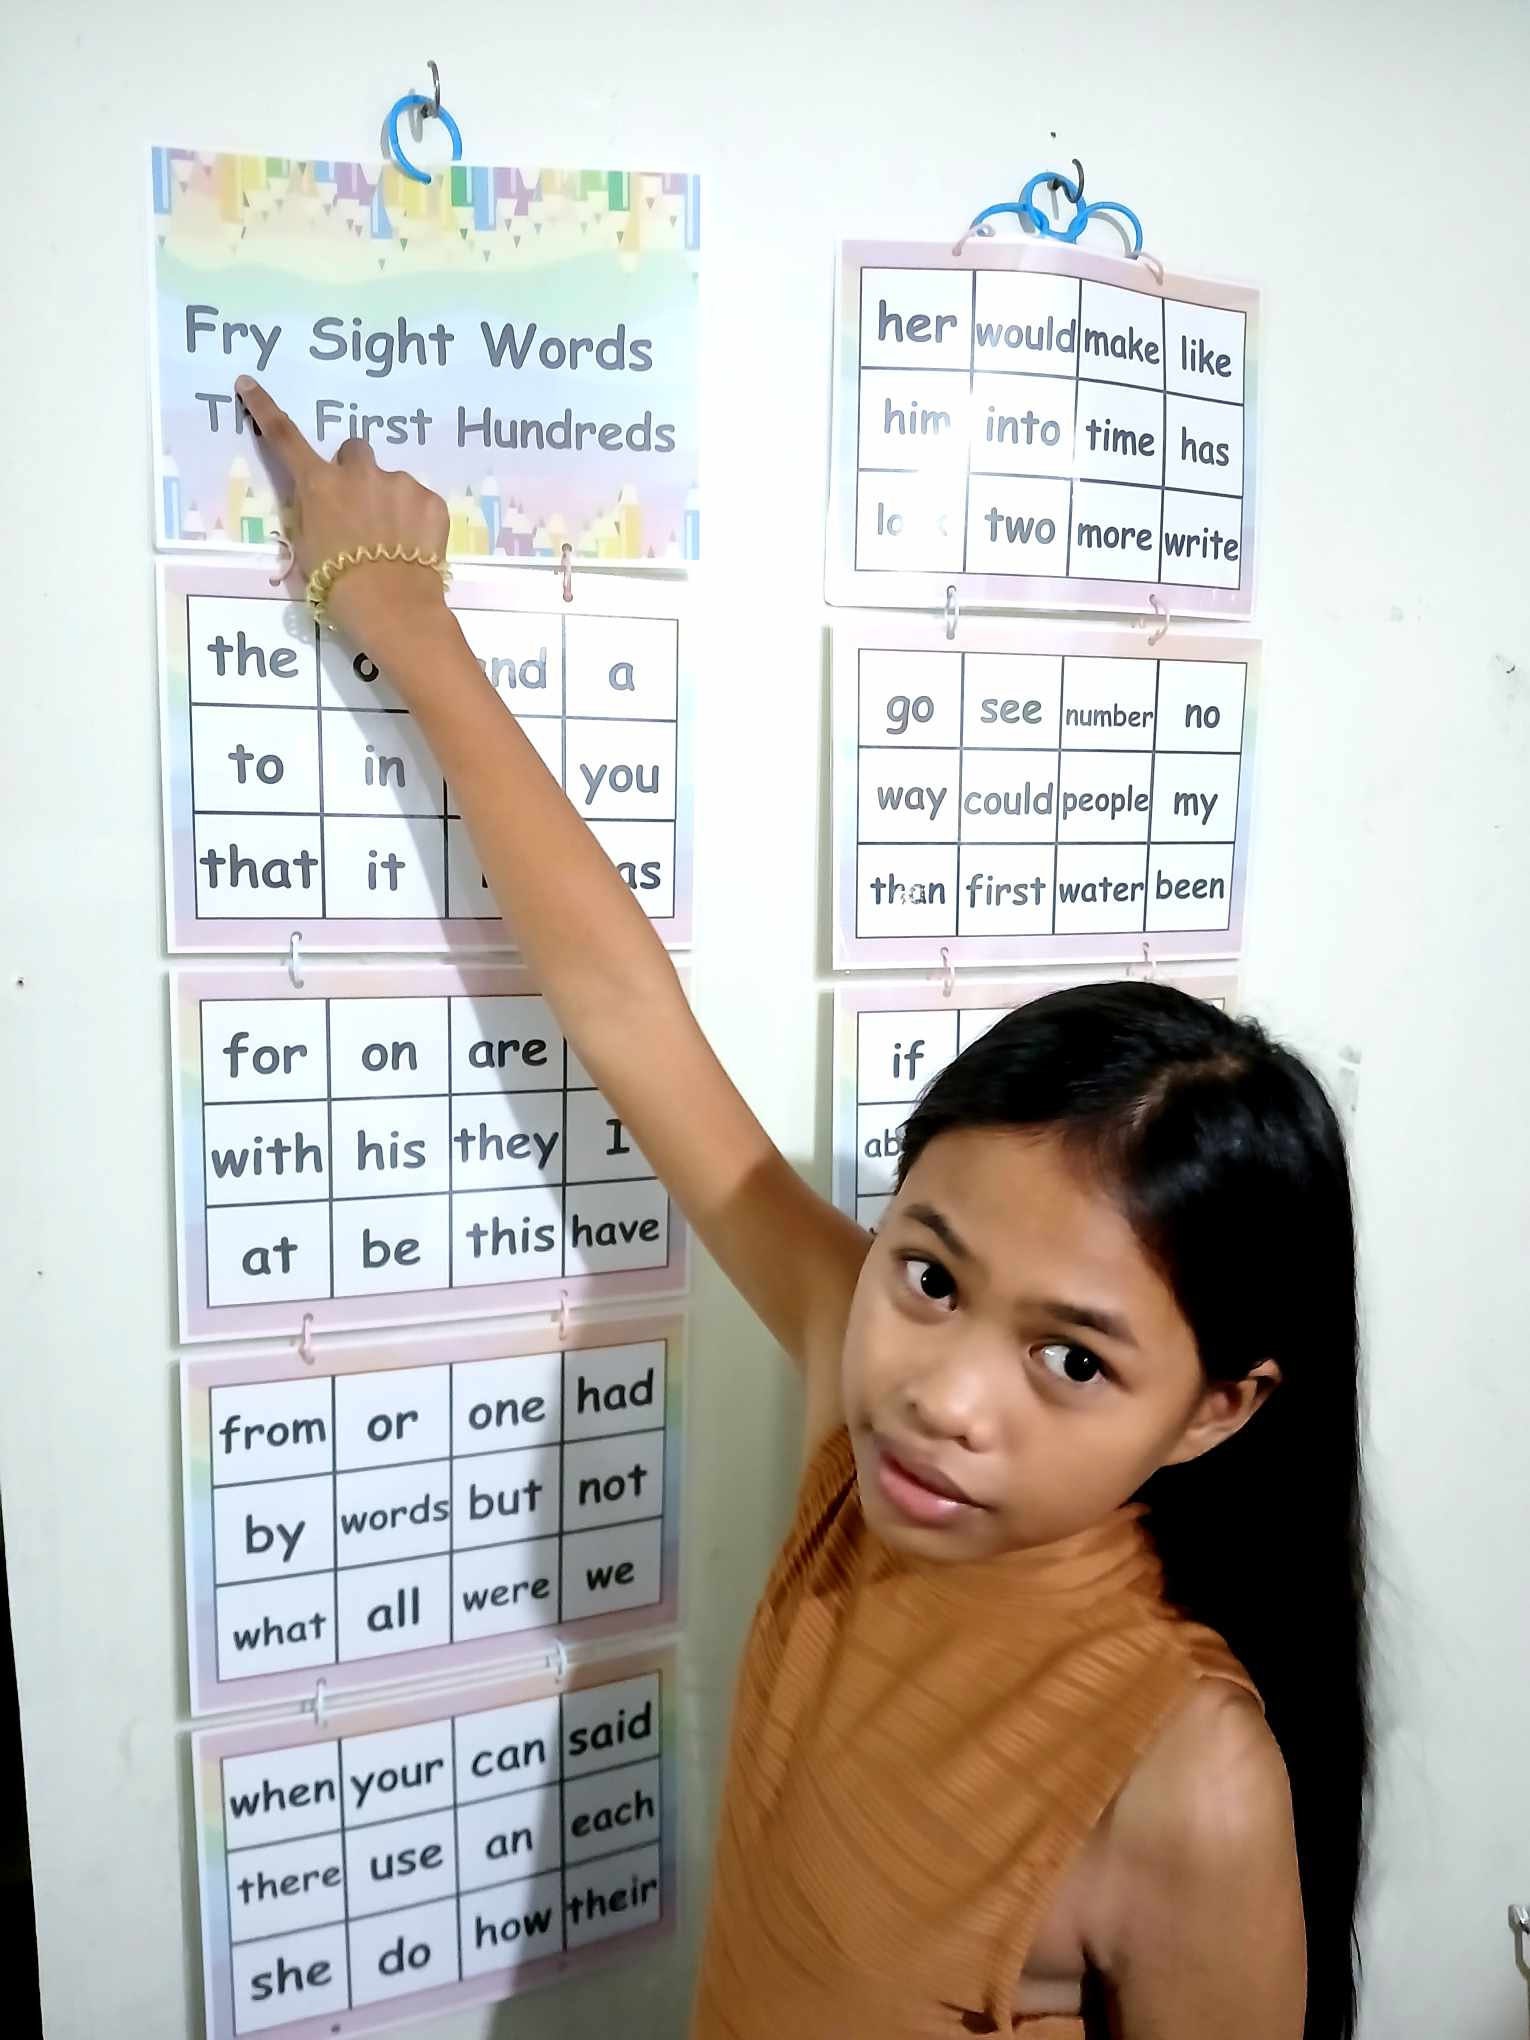 Fry Sight Words
The First Hundreds
the a
to in you
that it
for on are
with his they I
at be this have
from or one had
by words but not
what all were we
when your can said
there use an each
she do how their
her would make like
him into time has
two more write
go see number no
way could people my
than first water been
if